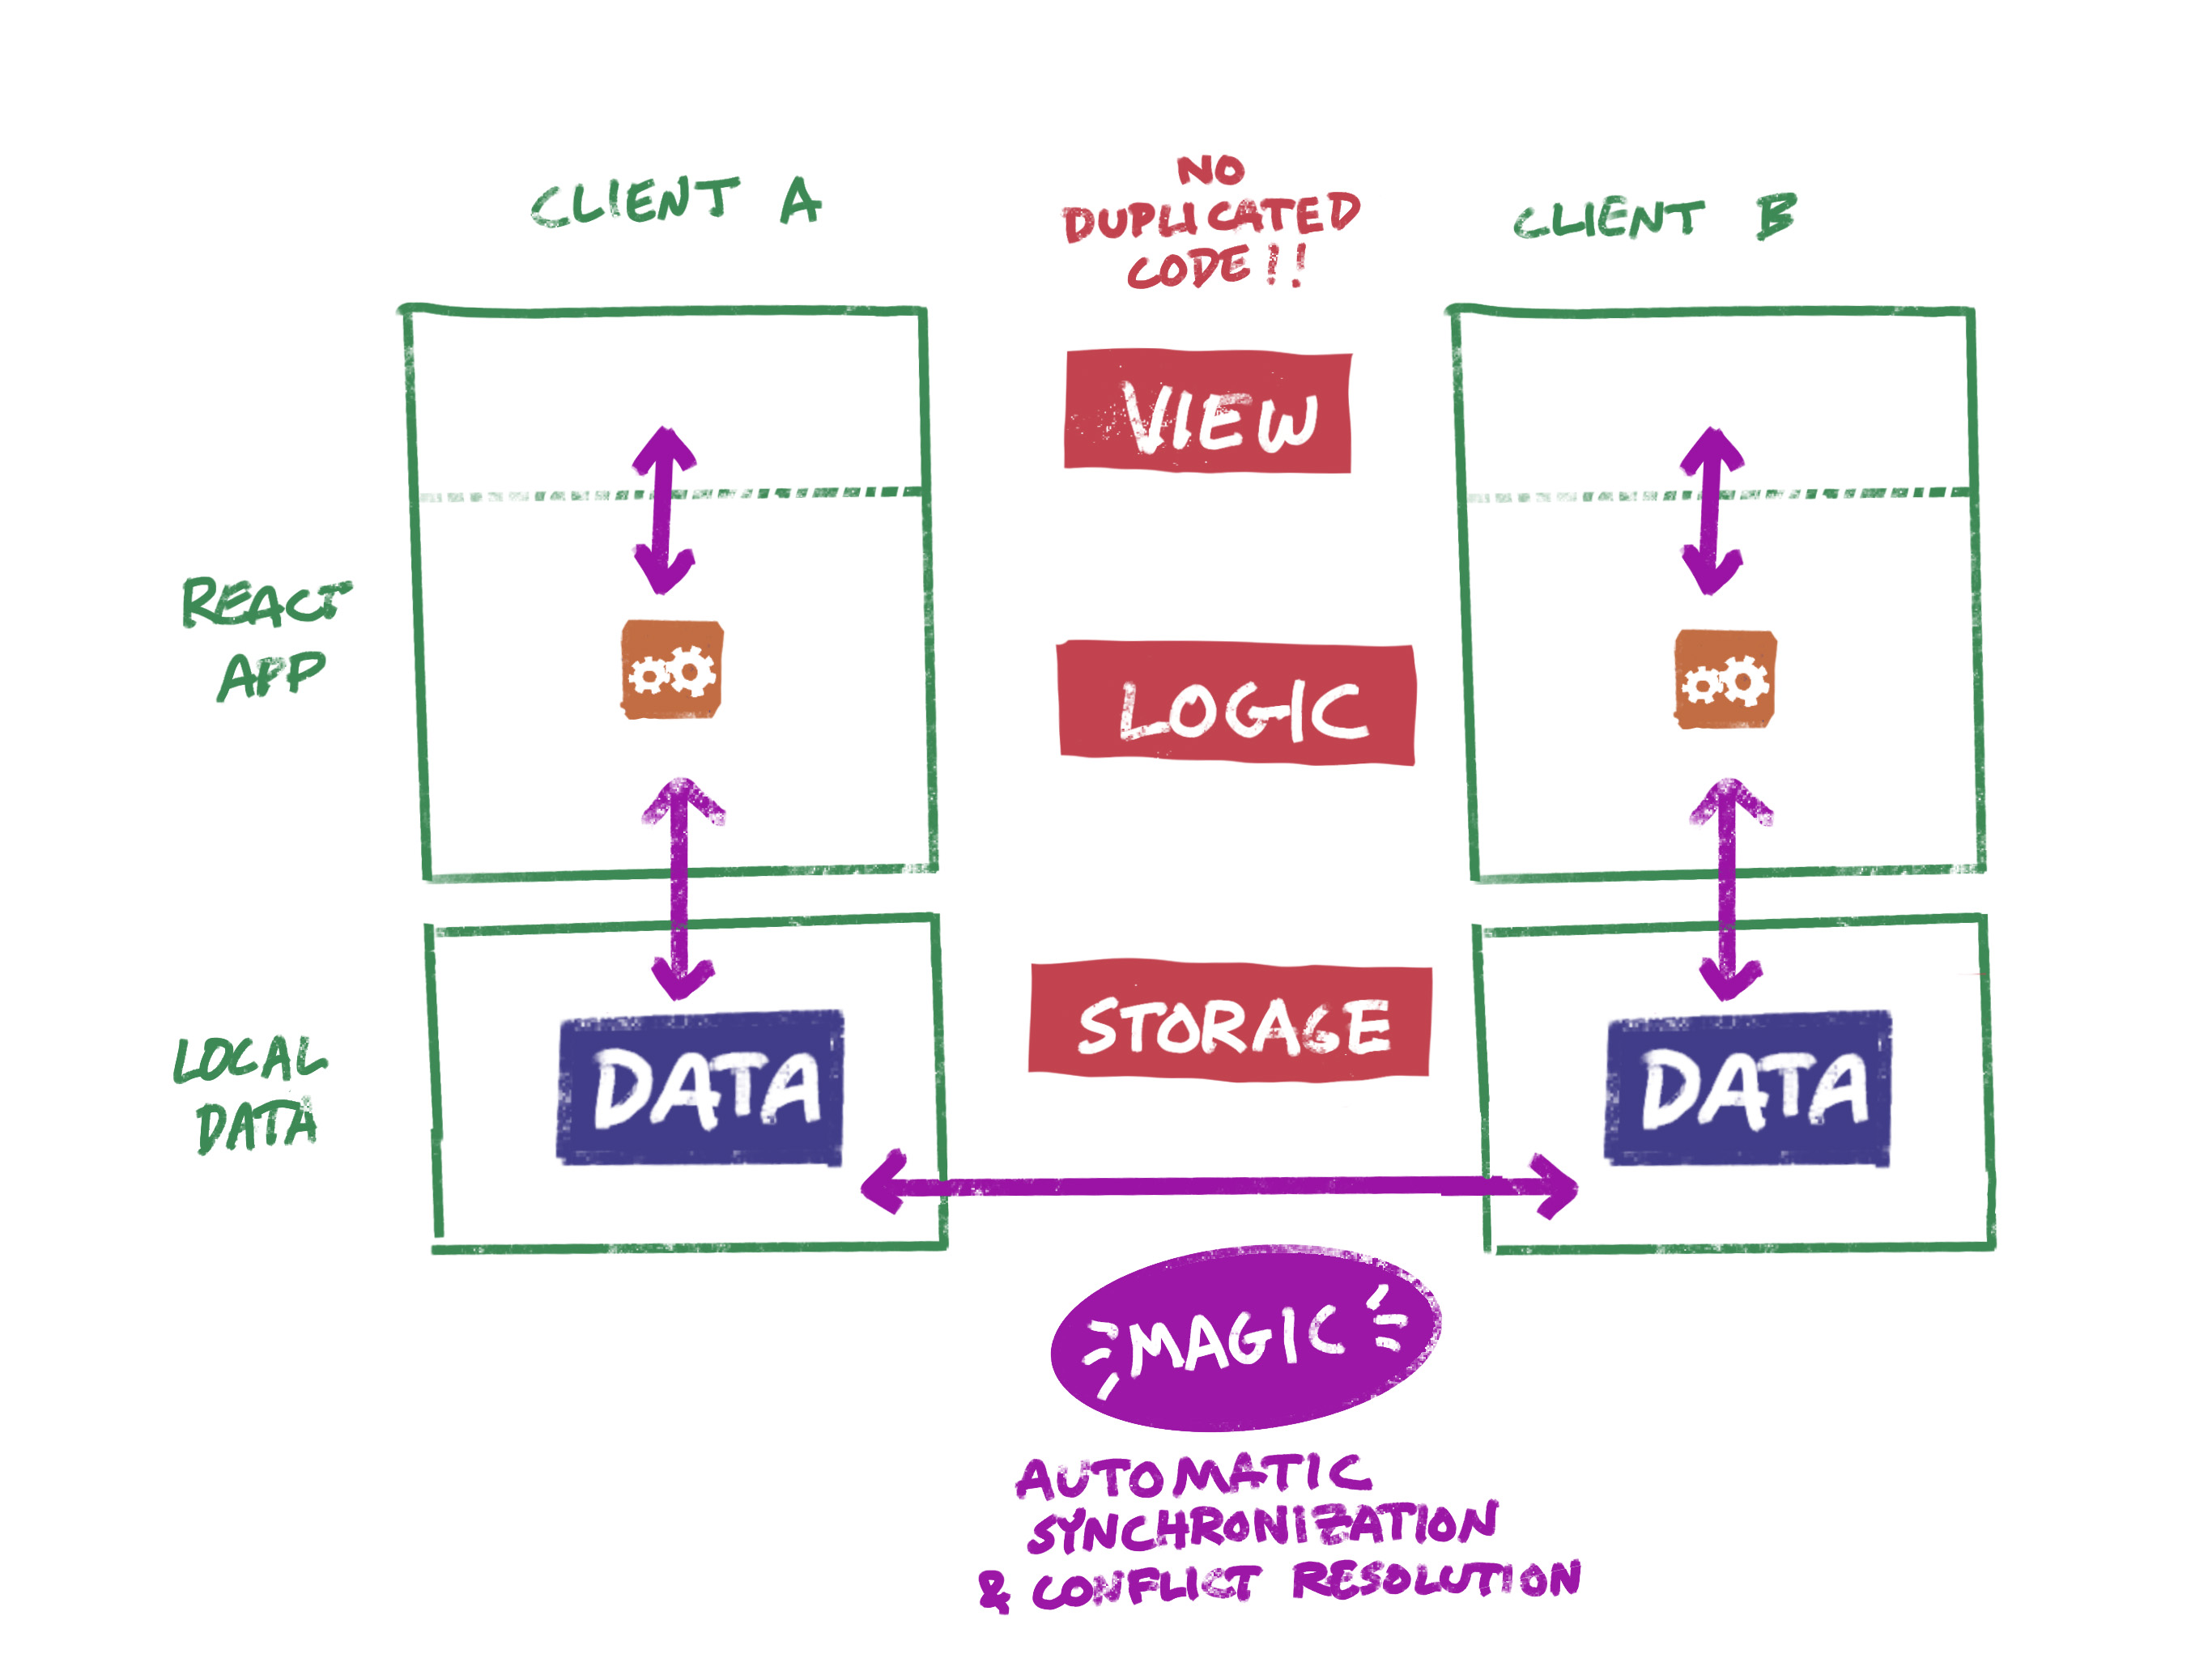 CLIENT A
NO
DUPLICATED
CODE!!
CLIENT B
VIEW
REACT
APP
LOGIC
LOCAL
DATA
DATA
STORAGE
DATA
MAGIC
AUTOMATIC
SYNCHRONIZATION
& CONFLICT RESOLUTION